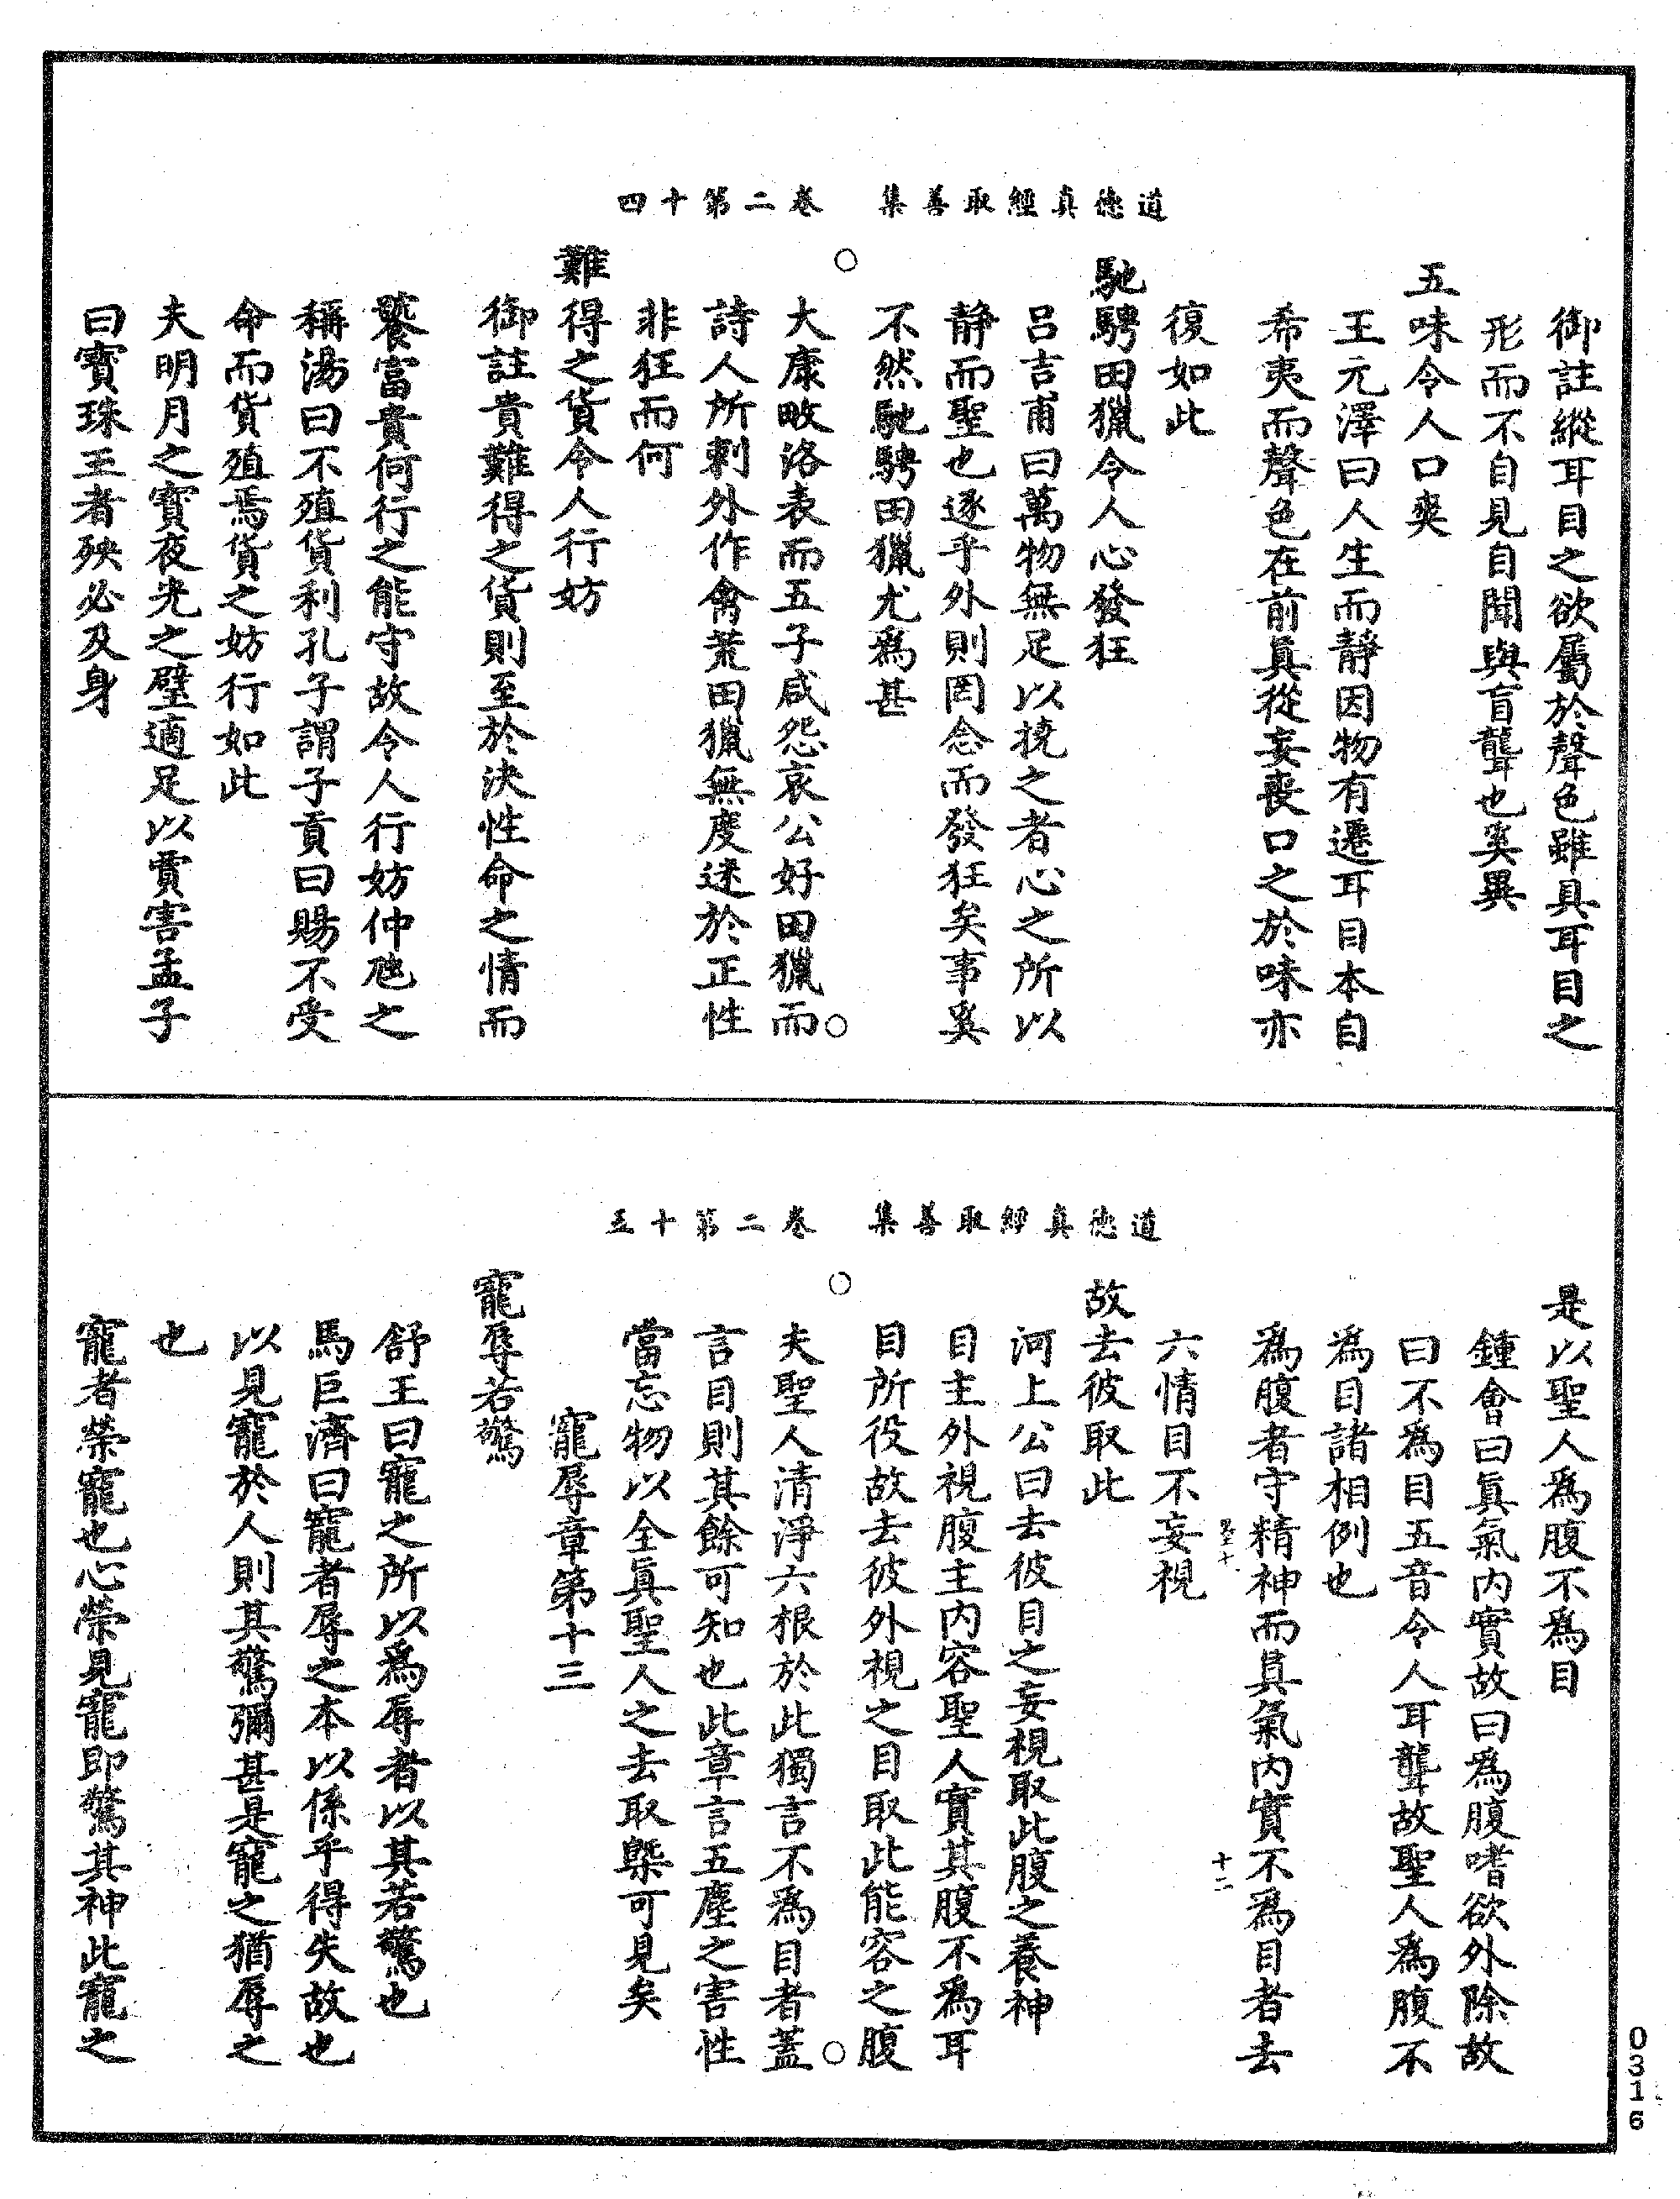 道德真經取善集　卷二第十四
御註縱耳目之欲屬於聲色雖具耳目之
形而不自見自聞與盲聾也奚異
五味令人口爽
王元澤曰人生而靜因物有遷耳目本自
希夷而聲色在前真從妄喪口之於味亦
復如此
馳騁田獵令人心發狂
呂吉甫曰萬物無足以撓之者心之所以
靜而聖也逐乎外則罔念而發狂矣事奚
不然馳騁田獵尤爲甚
大康畋洛表而五子咸怨哀公好田獵而
詩人所刺外作禽荒田獵無度迷於正性
非狂而何
難得之貨令人行妨
御註貴難得之貨則至於決性命之情而
饕富貴何行之能守故令人行妨仲虺之
稱湯曰不殖貨利孔子謂子貢曰賜不受
命而貨殖焉貨之妨行如此
夫明月之寶夜光之璧適足以賈害孟子
曰寶珠玉者殃必及身
道德真經取善集　卷二第十五
是以聖人爲腹不爲目
鍾會曰真氣內實故曰爲腹嗜欲外除故
曰不爲目五音令人耳聾故聖人爲腹不
爲目諸相例也
爲腹者守精神而真氣內實不爲目者去
十二
六情目不妄視
故去彼取此
河上公曰去彼目之妄視取此腹之養神
目主外視腹主內容聖人實其腹不爲耳
目所役故去彼外視之目取此能容之腹
夫聖人清淨六根於此獨言不爲目者蓋
言目則其餘可知也此章言五塵之害性
當忘物以全真聖人之去取槩可見矣
寵辱章第十三
寵辱若驚
舒王曰寵之所以爲辱者以其若驚也
馬巨濟曰寵者辱之本以係乎得失故也
以見寵於人則其驚彌甚是寵之猶辱之
也
寵者榮寵也心榮見寵即驚其神此寵之
0316